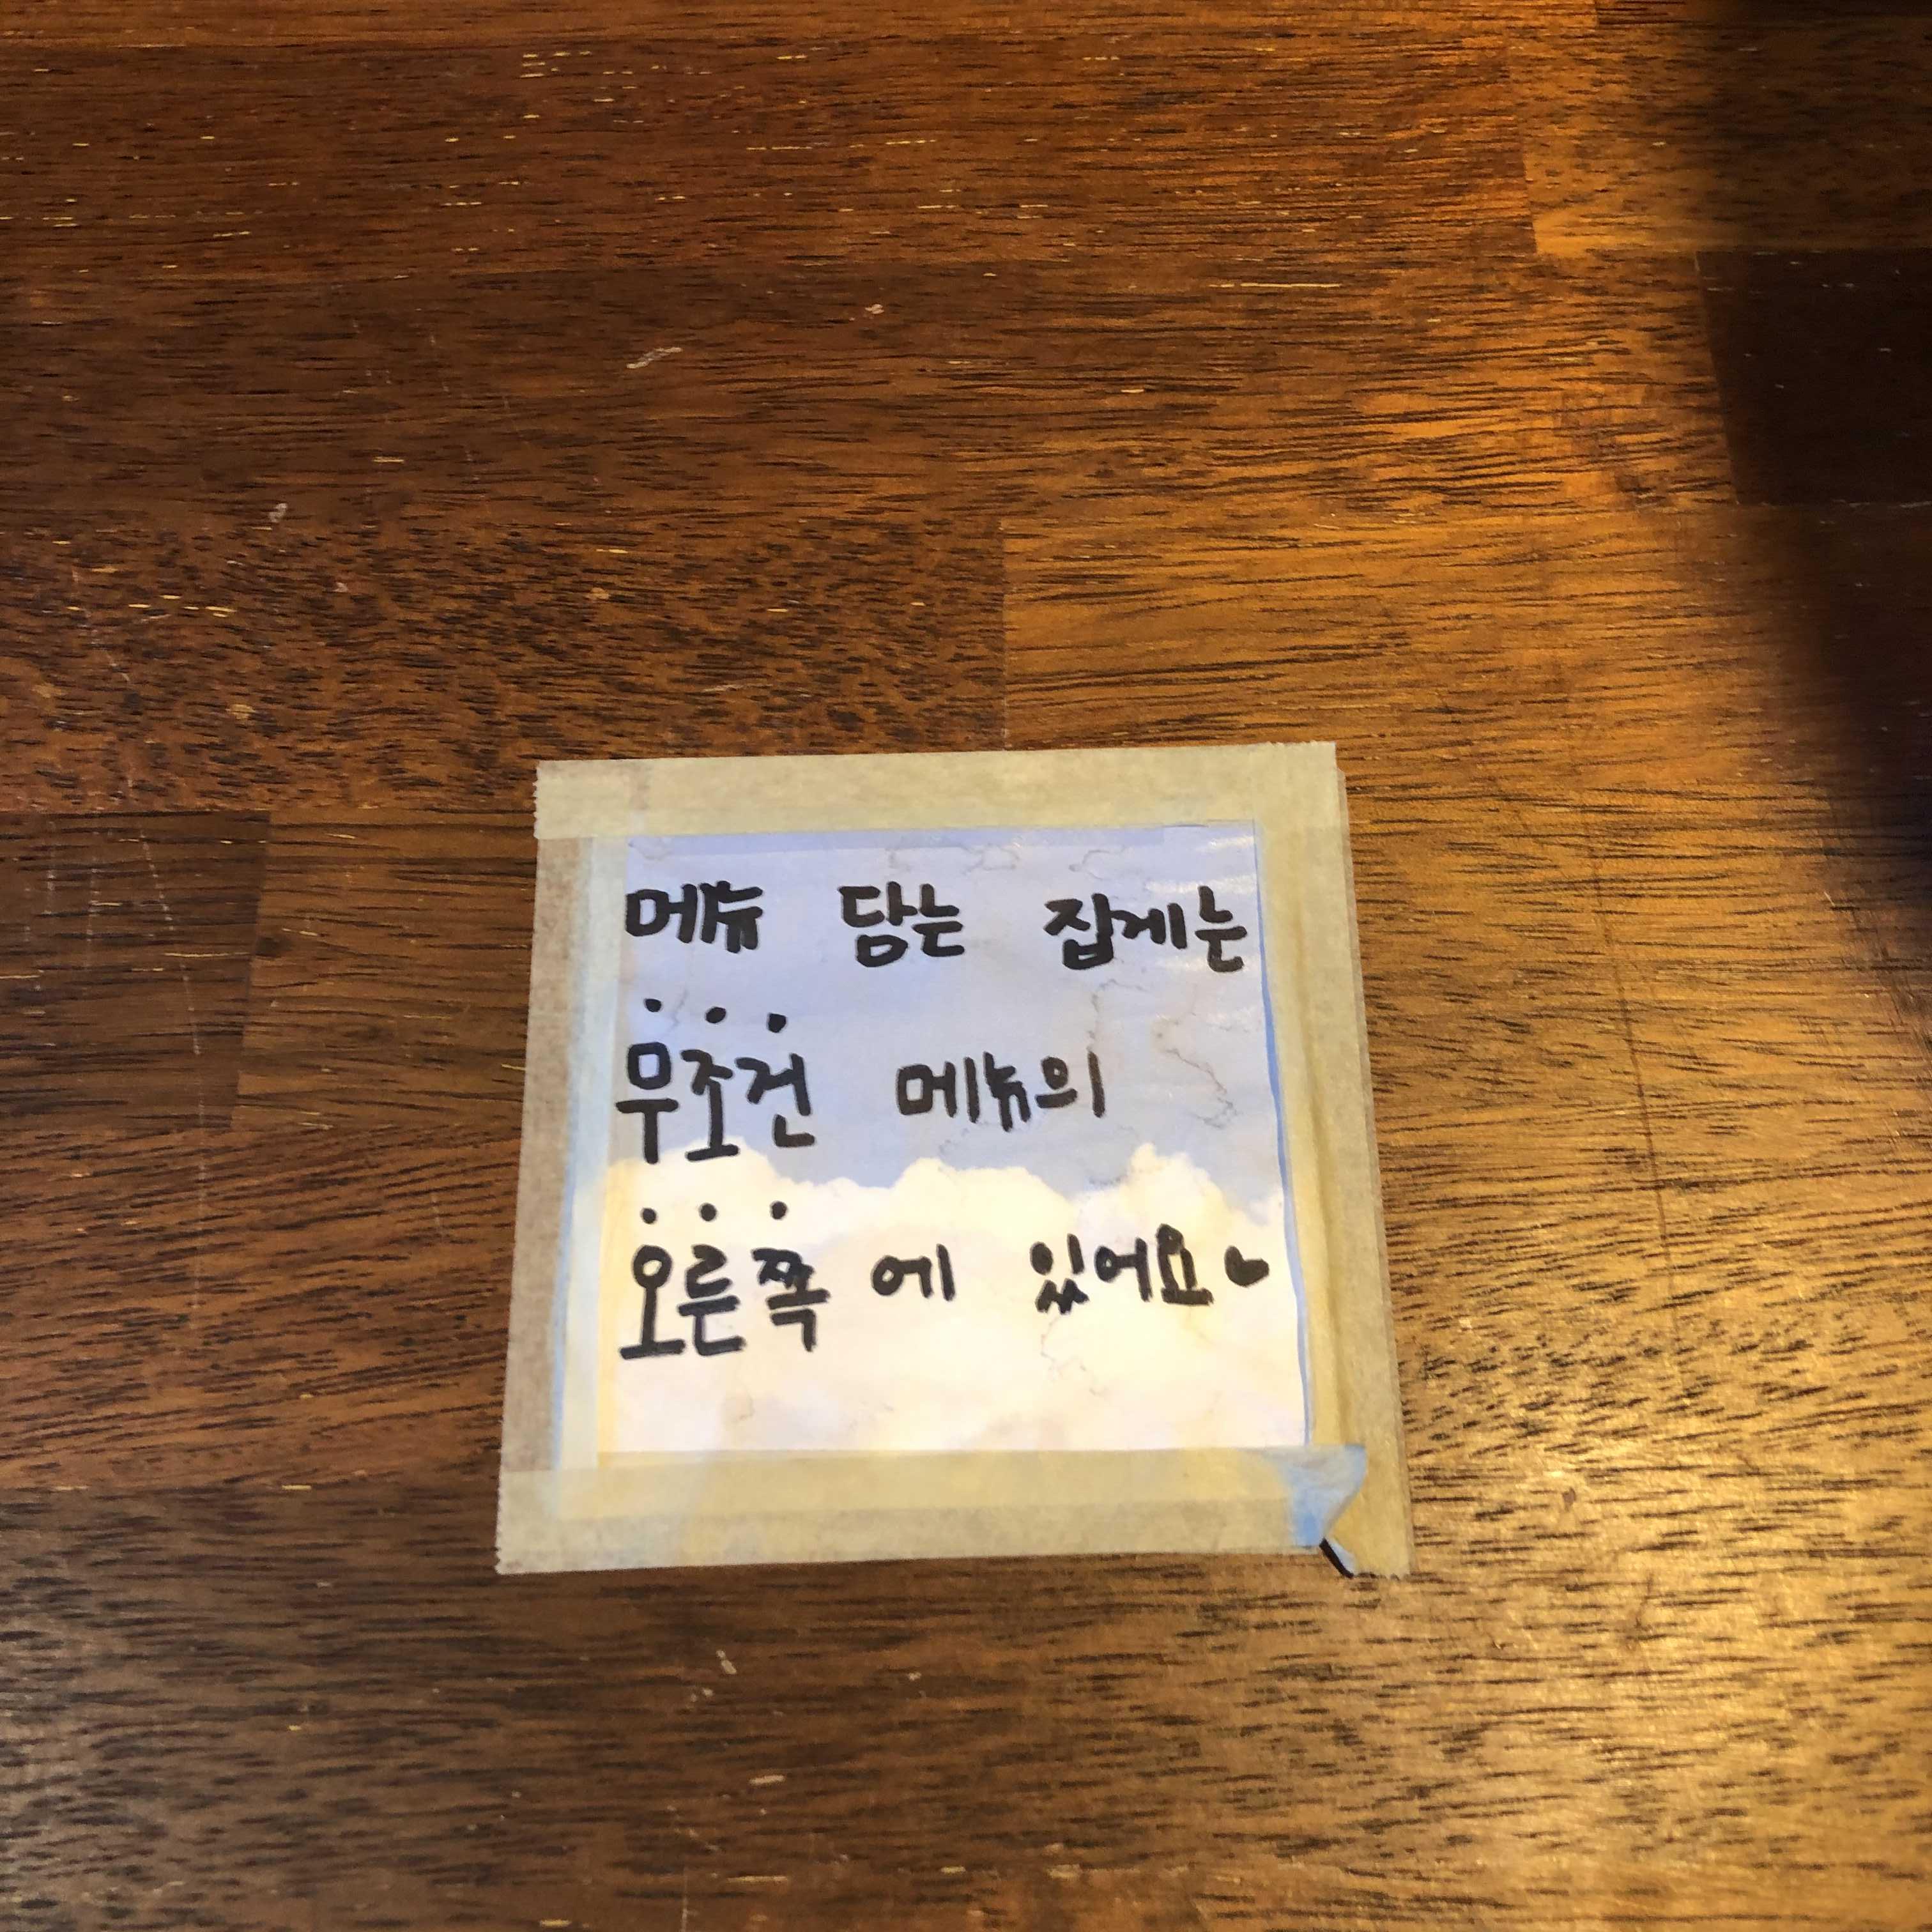 메뉴 담는 집게는
무조건 메뉴의
오른쪽에 있어요♥